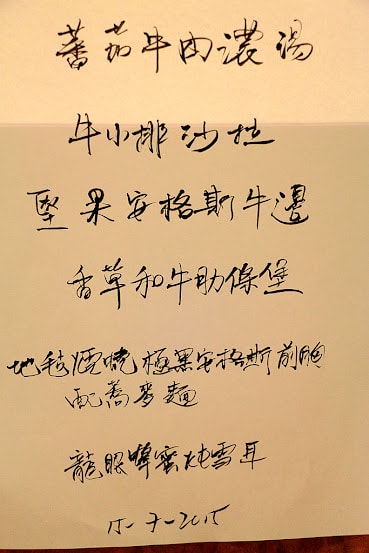 蕃茄牛肉濃湯
牛小排沙拉
堅果安格斯牛邊
香草和牛肋條堡
地毯煙燒極黑安格斯前胸
配蕎麥麵
龍眼蜂蜜炖雪耳
15-7-2015